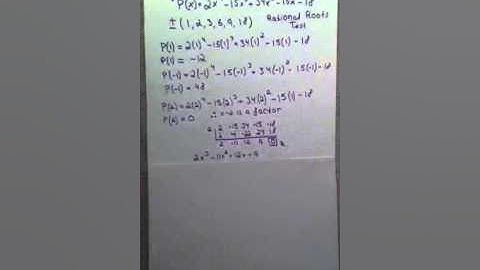 P(x)=2x⁴-15x³+34x²-15x-18
± (1, 2, 3, 6, 9, 18) Rational Roots
Test
P(1) = 2(1)⁴-15(1)³+34(1)²-15(1)-18
P(1) = -12
P(-1) = 2(-1)⁴-15(-1)³+34(-1)²-15(-1)-18
P(-1) = 48
P(2) = 2(2)⁴-15(2)³+34(2)²-15(1)-18
P(2) = 0 ∴ x-2 is a factor
2 | 2 -15 34 -15 -18
4 -22 24 18
2 -11 12 9 0
2x³-11x²+12x+9